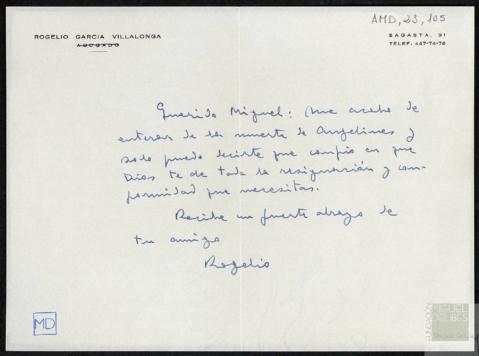 AMD, 23, 105
ROGELIO GARCIA VILLALONGA
ABOGADO
SAGASTA, 31
TELEF. 447-74-76
Querido Miguel: Me acabo de
enterar de la muerte de Angelines y
solo puedo decirte que confío en que
Dios te de toda la resignación y con-
formidad que necesitas.
Recibe un fuerte abrazo de
tu amigo
Rogelio
MD
FUNDACIÓN
MIGUEL
DELIBES